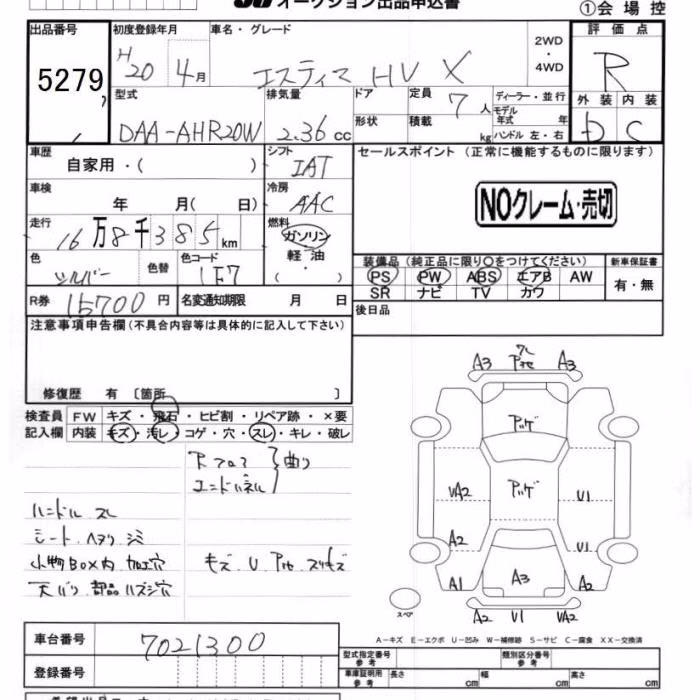 オークション出品申込書
①会場控
出品番号 初度登録年月 車名・グレード 2WD・4WD 評価点
5279 H20 4月 エスティマ HV X R
型式 排気量 ドア 定員 7人 ディーラー・並行 外装 内装
形状 積載 kg モデル年式 年 ハンドル 左・右
DAA-AHR20W 2.36cc D C
車歴 シフト セールスポイント (正常に機能するものに限ります)
自家用・( ) IAT
車検 冷房 NOクレーム・売切
年 月( 日) AAC
走行 燃料
16万8千385km ガソリン
軽油
・( )
色 色替 色コード 装備品(純正品に限り○をつけてください) 新車保証書
シルバー 1F7 PS PW ABS エアB AW 有・無
SR ナビ TV カワ
R券 15700円 名変通知期限 月 日 後日品
注意事項申告欄(不具合内容等は具体的に記入して下さい)
修復歴 有 〔箇所 〕
検査員 FW キズ・飛石・ヒビ割・リペア跡・×要
記入欄 内装 キズ・汚レ・コゲ・穴・スレ・キレ・破レ
Rフロア
エンドパネル 曲り
ハンドル スレ
シート ヘタリ シミ
小物BOX内 加工穴 キズ.U.Pカセ スリキズ
天バリ 部品ハズシ穴
A3 A3
UA2 U1
A2 U1
A1 A3 A2
スペア A2 U1 UA2
A-キズ E-エクボ U-凹み W-補修跡 S-サビ C-腐食 XX-交換済
車台番号 7021300
型式指定番号 参考 類別区分番号 参考
登録番号 車庫証明用 参考 長さ cm 幅 cm 高さ cm